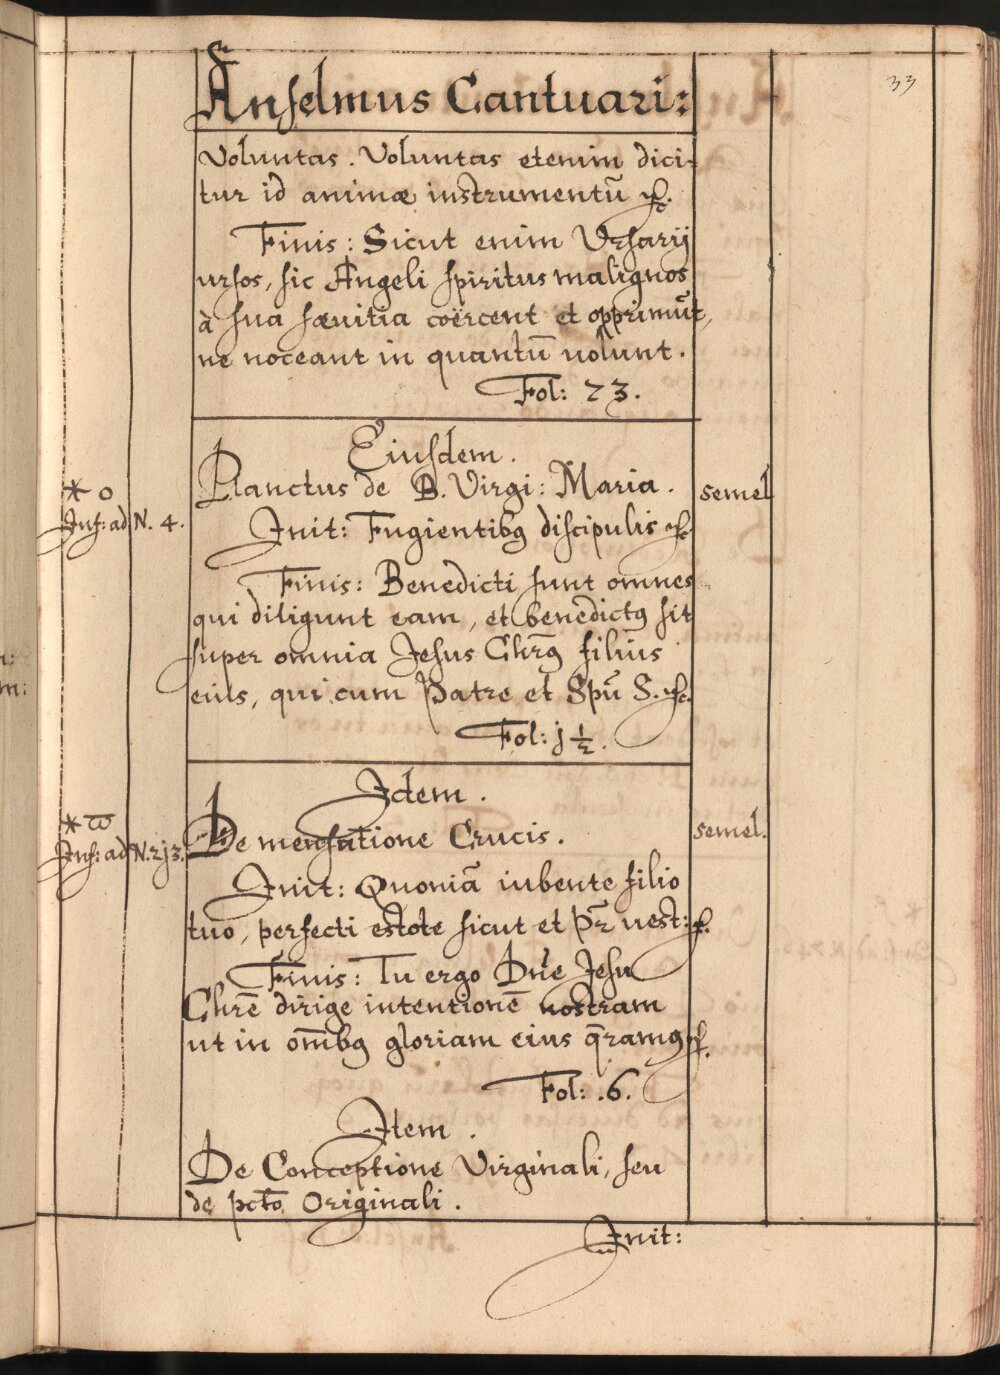 33
Anselmus Cantuari:
Voluntas. Voluntas etenim dici-
tur id animæ instrumentū &c.
Finis: Sicut enim Ursarij
ursos, sic Angeli spiritus malignos
à sua sævitia coërcent et opprimūt,
ne noceant in quantū volunt.
Fol: 23.
Eiusdem.
Planctus de B. Virgi: Maria. semel
* o
Inf: ad N. 4.
Init: Fugientibꝯ discipulis &c
Finis: Benedicti sunt omnes
qui diligunt eam, et benedictꝯ sit
super omnia Jesus Chrꝯ̄ filius
eius, qui cum Patre et Spū S. &c.
Fol: j ½.
Idem.
* ϖ
De mensutione Crucis. semel.
Inf: ad N. 2j3.
Init: Quoniā iubente filio
tuo, perfecti estote sicut et Pr̄ vest: &c.
Finis: Tu ergo Dn̄e Jesu
Chrē dirige intentionē nostram
ut in om̄bꝯ gloriam eius q̄ramꝯ &c.
Fol: .6.
Item.
De Conceptione Virginali, seu
de pc̄to Originali.
Init: